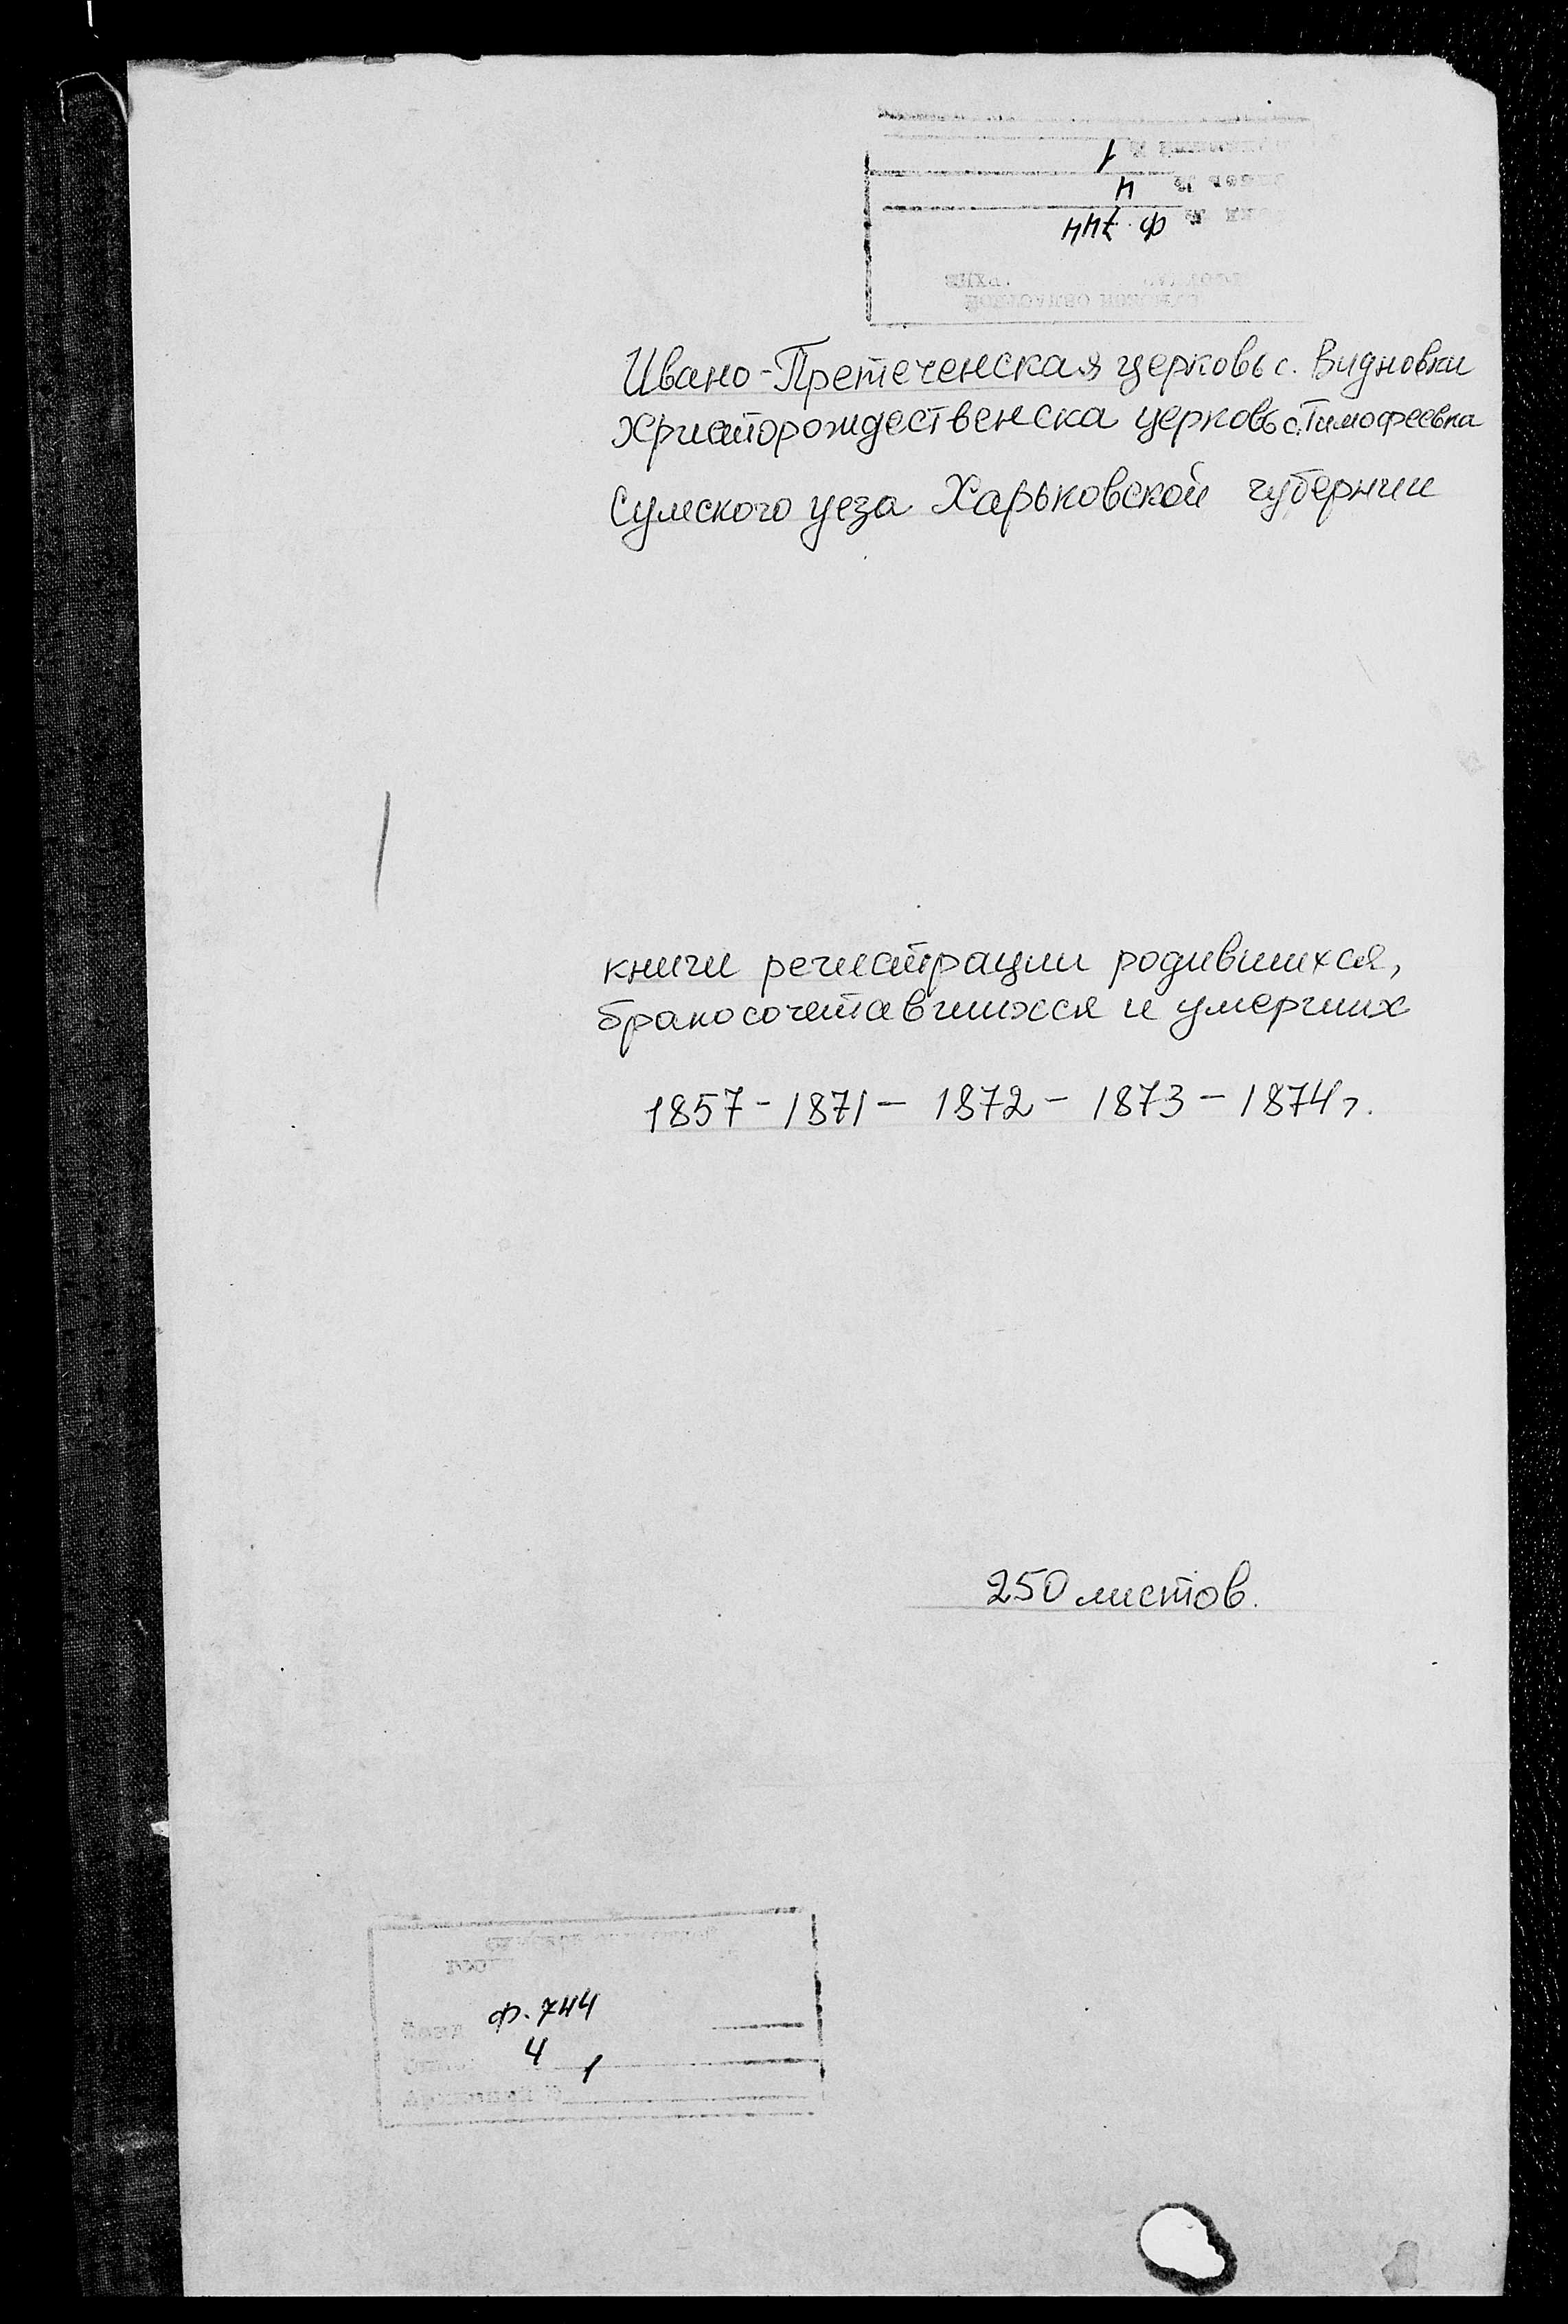 1
4
ф. 744
Ивано-Претеченская церковь с. Видновки
Христорождественска церковь с. Тимофеевка
Сумского уеза Харьковской губернии
книги регистрации родившихся,
бракосочетавшихся и умерших
1857 - 1871 - 1872 - 1873 - 1874 г.
250 листов.
ф. 744
4
1